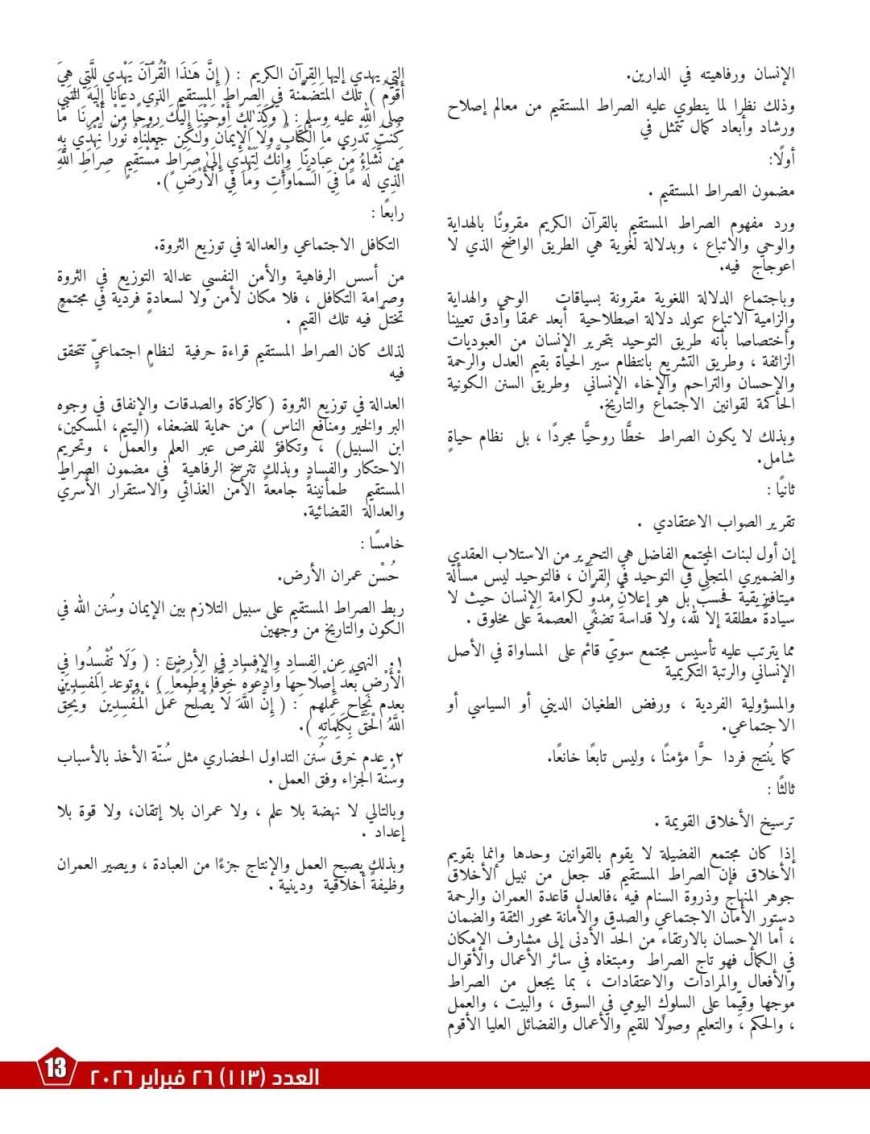 الإنسان ورفاهيته في الدارين.
وذلك نظرا لما ينطوي عليه الصراط المستقيم من معالم إصلاح
ورشاد وأبعاد كمال تتمثل في
أولًا:
مضمون الصراط المستقيم .
ورد مفهوم الصراط المستقيم بالقرآن الكريم مقرونًا بالهداية
والوحي والاتباع ، وبدلالة لغوية هي الطريق الواضح الذي لا
اعوجاج فيه.
وباجتماع الدلالة اللغوية مقرونة بسياقات الوحي والهداية
وإلزامية الاتباع تتولد دلالة اصطلاحية أبعد عمقا وأدق تعيينا
واختصاصا بأنه طريق التوحيد بتحرير الإنسان من العبوديات
الزائفة ، وطريق التشريع بانتظام سير الحياة بقيم العدل والرحمة
والإحسان والتراحم والإخاء الإنساني وطريق السنن الكونية
الحاكمة لقوانين الاجتماع والتاريخ.
وبذلك لا يكون الصراط خطًّا روحيًّا مجردًا ، بل نظام حياةٍ
شامل.
ثانيًا :
تقرير الصواب الاعتقادي .
إن أول لبنات المجتمع الفاضل هي التحرير من الاستلاب العقدي
والضميري المتجلّي في التوحيد في القرآن ، فالتوحيد ليس مسألة
ميتافيزيقية فحسب بل هو إعلانٌ مُدوٍّ لكرامة الإنسان حيث لا
سيادةَ مطلقة إلا لله، ولا قداسةَ تُضفي العصمةَ على مخلوق .
مما يترتب عليه تأسيس مجتمع سويّ قائم على المساواة في الأصل
الإنساني والرتبة التكريمية
والمسؤولية الفردية ، ورفض الطغيان الديني أو السياسي أو
الاجتماعي.
كما يُنتج فردا حرًّا مؤمنًا ، وليس تابعًا خانعًا.
ثالثًا :
ترسيخ الأخلاق القويمة .
إذا كان مجتمع الفضيلة لا يقوم بالقوانين وحدها وإنما بقويم
الأخلاق فإن الصراط المستقيم قد جعل من نبيل الأخلاق
جوهر المنهاج وذروة السنام فيه ،فالعدل قاعدة العمران والرحمة
دستور الأمان الاجتماعي والصدق والأمانة محور الثقة والضمان
، أما الإحسان بالارتقاء من الحدّ الأدنى إلى مشارف الإمكان
في الكمال فهو تاج الصراط ومبتغاه في سائر الأعمال والأقوال
والأفعال والمرادات والاعتقادات ، بما يجعل من الصراط
موجها وقيّما على السلوك اليومي في السوق ، والبيت ، والعمل
، والحكم ، والتعليم وصولًا للقيم والأعمال والفضائل العليا الأقوم
التي يهدي إليها القرآن الكريم : ( إِنَّ هَٰذَا الْقُرْآنَ يَهْدِي لِلَّتِي هِيَ
أَقْوَمُ ) تلك المتَضَمَّنة في الصراط المستقيم الذي دعانا إليه النبي
صلى الله عليه وسلم : ( وَكَذَٰلِكَ أَوْحَيْنَا إِلَيْكَ رُوحًا مِّنْ أَمْرِنَا مَا
كُنتَ تَدْرِي مَا الْكِتَابُ وَلَا الْإِيمَانُ وَلَٰكِن جَعَلْنَاهُ نُورًا نَّهْدِي بِهِ
مَن نَّشَاءُ مِنْ عِبَادِنَا وَإِنَّكَ لَتَهْدِي إِلَىٰ صِرَاطٍ مُّسْتَقِيمٍ صِرَاطِ اللَّهِ
الَّذِي لَهُ مَا فِي السَّمَاوَاتِ وَمَا فِي الْأَرْضِ ).
رابعًا :
التكافل الاجتماعي والعدالة في توزيع الثروة.
من أسس الرفاهية والأمن النفسي عدالة التوزيع في الثروة
وصرامة التكافل ، فلا مكان لأمن ولا لسعادةٍ فردية في مجتمعٍ
تختلّ فيه تلك القيم .
لذلك كان الصراط المستقيم قراءة حرفية لنظامٍ اجتماعيٍّ تتحقق
فيه
العدالة في توزيع الثروة (كالزكاة والصدقات والإنفاق في وجوه
البر والخير ومنافع الناس ) من حماية للضعفاء (اليتيم، المسكين،
ابن السبيل) ، وتكافؤ للفرص عبر العلم والعمل ، وتحريم
الاحتكار والفساد وبذلك تترسخ الرفاهية في مضمون الصراط
المستقيم طمأنينةً جامعةً الأمن الغذائي والاستقرار الأسريّ
والعدالة القضائية.
خامسًا :
حُسْن عمران الأرض.
ربط الصراط المستقيم على سبيل التلازم بين الإيمان وسُنن الله في
الكون والتاريخ من وجهين
١. النهي عن الفساد والإفساد في الأرض : ( وَلَا تُفْسِدُوا فِي
الْأَرْضِ بَعْدَ إِصْلَاحِهَا وَادْعُوهُ خَوْفًا وَطَمَعًا ) ، وتوعد المفسدين
بعدم نجاح عملهم : ( إِنَّ اللَّهَ لَا يُصْلِحُ عَمَلَ الْمُفْسِدِينَ وَيُحِقُّ
اللَّهُ الْحَقَّ بِكَلِمَاتِهِ ).
٢. عدم خرق سُنن التداول الحضاري مثل سُنّة الأخذ بالأسباب
وسُنّة الجزاء وفق العمل .
وبالتالي لا نهضة بلا علم ، ولا عمران بلا إتقان، ولا قوة بلا
إعداد .
وبذلك يصبح العمل والإنتاج جزءًا من العبادة ، ويصير العمران
وظيفةً أخلاقية ودينية .
العدد (١١٣) ٢٦ فبراير ٢٠٢٦
13